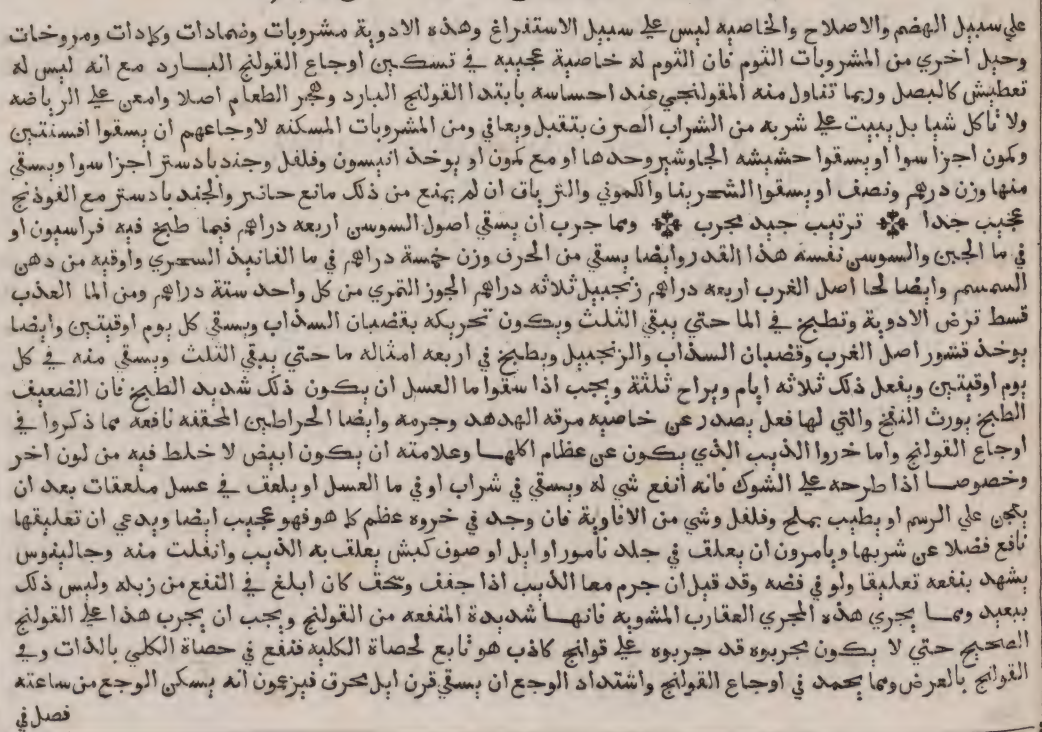 علي سبيل الهضم والاصلاح والخاصيه ليس علي سبيل الاستفراغ وهذه الادوية مشروبات وضمادات وكمادات ومروخات
وحيل اخري من المشروبات الثوم فان الثوم له خاصية عجيبه في تسكين اوجاع القولنج البارد مع انه ليس له
تعطيش كالبصل وربما تناول منه المقولنجي عند احساسه بابتدا القولنج البارد وهجر الطعام اصلا وامعن علي الرياضه
ولا ناكل شيا بل يبيت علي شربه من الشراب الصرف بتقبل ويعافي ومن المشروبات المسكنه لاوجاعهم ان يسقوا افسنتين
وكمون اجزا سوا او يسقوا حشيشه الجاوشير وحدها او مع كمون او يوخذ انيسون وفلفل وجندبادستر اجزا سوا ويسقي
منها وزن درهم ونصف او يسقوا الشحرينا والكموني والترياق ان لم يمنع من ذلك مانع حاضر والجندبادستر مع الفوذنج
عجيب جدا ترتيب جيد مجرب ومما جرب ان يسقي اصول السوسن اربعه دراهم فيما طبخ فيه فراسيون او
في ما الجبن والسوسن نفسه هذا القدر وايضا يسقي من الحرف وزن خمسة دراهم في ما الفانيذ السجزي واوقيه من دهن
السمسم وايضا لحا اصل الغرب اربعه دراهم زنجبيل ثلاثه دراهم الجوز التمري من كل واحد ستة دراهم ومن الما العذب
قسط ترض الادوية وتطبخ في الما حتي يبقي الثلث ويكون تحريكه بقضبان السذاب ويسقي كل يوم اوقيتين وايضا
يوخذ قشور اصل الغرب وقضبان السذاب والزنجبيل ويطبخ في اربعه امثاله ما حتي يبقي الثلث ويسقي منه في كل
يوم اوقيتين ويفعل ذلك ثلاثه ايام ويراح ثلثة ويجب اذا سقوا ما العسل ان يكون ذلك شديد الطبخ فان الضعيف
الطبخ يورث النفخ والتي لها فعل يصدر عن خاصيه مرقه الهدهد وجرمه وايضا الخراطين المجففه نافعه مما ذكروا في
اوجاع القولنج واما خروا الذيب الذي يكون عن عظام اكلها وعلامته ان يكون ابيض لا خلط فيه من لون اخر
وخصوصا اذا طرحه علي الشوك فانه انفع شي له ويسقي في شراب او في ما العسل او يلعق في عسل ملعقات بعد ان
يعجن علي الرسم او يطيب بملح وفلفل وشي من الافاوية فان وجد في خروه عظم كما هو فهو عجيب ايضا ويدعي ان تعليقها
نافع فضلا عن شربها ويامرون ان يعلق في جلد نامور او ايل او صوف كبش يعلف به الذيب وانفلت منه وجالينوس
يشهد بنفعه تعليقا ولو في فضه وقد قيل ان جرم معا الذيب اذا جفف وسحق كان ابلغ في النفع من زبله وليس ذلك
ببعيد ومما يجري هذه المجري العقارب المشويه فانها شديدة المنفعه من القولنج ويجب ان يجرب هذا علي القولنج
الصحيح حتي لا يكون مجربوه قد جربوه علي قولنج كاذب هو تابع لحصاة الكليه فنفع في حصاة الكلي بالذات وفي
القولنج بالعرض ومما يحمد في اوجاع القولنج واشتداد الوجع ان يسقي قرن ايل محرق فيزعمون انه يسكن الوجع من ساعته
فصل في